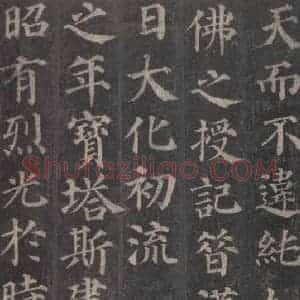 天而不違純
佛之授記昔漢
日大化初流
之年寶塔斯建
昭有烈光於時
Shufaziliao.com